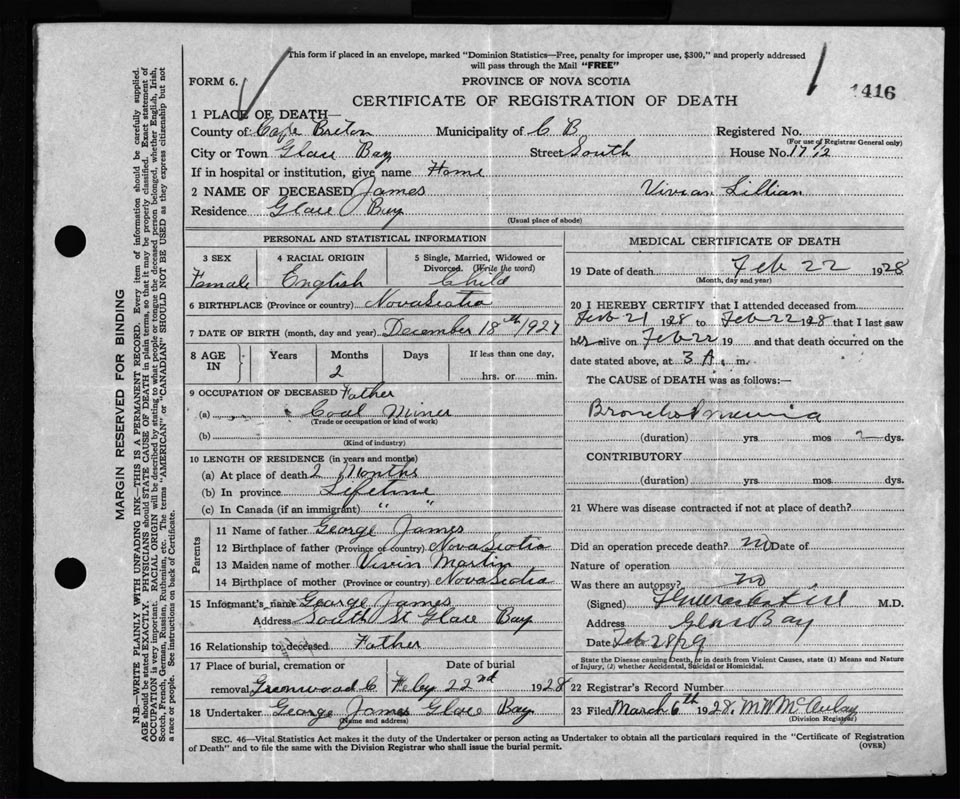 This form if placed in an envelope, marked "Dominion Statistics—Free, penalty for improper use, $300," and properly addressed
will pass through the Mail "FREE"
FORM 6.
PROVINCE OF NOVA SCOTIA
1416
CERTIFICATE OF REGISTRATION OF DEATH
1 PLACE OF DEATH—
County of: Cape Breton Municipality of C B Registered No.
(For use of Registrar General only)
City or Town Glace Bay Street South House No. 17 1/2
If in hospital or institution, give name Home
2 NAME OF DECEASED James Vivian Lillian
Residence Glace Bay
(Usual place of abode)
PERSONAL AND STATISTICAL INFORMATION
3 SEX 4 RACIAL ORIGIN 5 Single, Married, Widowed or
Divorced. (Write the word)
Female English Child
6 BIRTHPLACE (Province or country) Nova Scotia
7 DATE OF BIRTH (month, day and year) December 18th/1927
8 AGE IN Years Months Days If less than one day,
2 hrs. or min.
9 OCCUPATION OF DECEASED Father
(a) Coal Miner
(Trade or occupation or kind of work)
(b)
(Kind of industry)
10 LENGTH OF RESIDENCE (in years and months)
(a) At place of death 2 Months
(b) In province Lifetime
(c) In Canada (if an immigrant) " "
Parents
11 Name of father George James
12 Birthplace of father (Province or country) Nova Scotia
13 Maiden name of mother Martin
14 Birthplace of mother (Province or country) Nova Scotia
15 Informant's name George James
Address South St Glace Bay
16 Relationship to deceased Father
17 Place of burial, cremation or Date of burial
removal Greenwood C Feby 22nd 1928
18 Undertaker George James Glace Bay
(Name and address)
MEDICAL CERTIFICATE OF DEATH
19 Date of death Feb 22 1928
(Month, day and year)
20 I HEREBY CERTIFY that I attended deceased from
Feb 21 1928 to Feb 22 1928 that I last saw
her alive on Feb 22 19 and that death occurred on the
date stated above, at 3 A. m.
The CAUSE OF DEATH was as follows:—
Broncho Pneumia
(duration) yrs mos 2 dys.
CONTRIBUTORY
(duration) yrs mos dys.
21 Where was disease contracted if not at place of death?
Did an operation precede death? no Date of
Nature of operation
Was there an autopsy? no
(Signed) M.D.
Address Glace Bay
Date Feb 28/29
State the Disease causing Death, or in death from Violent Causes, state (1) Means and Nature
of Injury, (2) whether Accidental, Suicidal or Homicidal.
22 Registrar's Record Number
23 Filed March 6th 1928. M W McAulay
(Division Registrar)
SEC. 46—Vital Statistics Act makes it the duty of the Undertaker or person acting as Undertaker to obtain all the particulars required in the "Certificate of Registration
of Death" and to file the same with the Division Registrar who shall issue the burial permit.
(OVER)
MARGIN RESERVED FOR BINDING
N.B.—WRITE PLAINLY WITH UNFADING INK—THIS IS A PERMANENT RECORD. Every item of information should be carefully supplied.
AGE should be stated EXACTLY. PHYSICIANS should STATE CAUSE OF DEATH in plain terms, so that it may be properly classified. Exact statement of
OCCUPATION is very important. RACIAL ORIGIN will be described by stating to what people or tongue the deceased person belonged, whether English, Irish,
Scotch, French, German, Russian, Ruthenian, etc. The terms "AMERICAN" or "CANADIAN" SHOULD NOT BE USED as they express citizenship but not
a race or people. See instructions on back of Certificate.